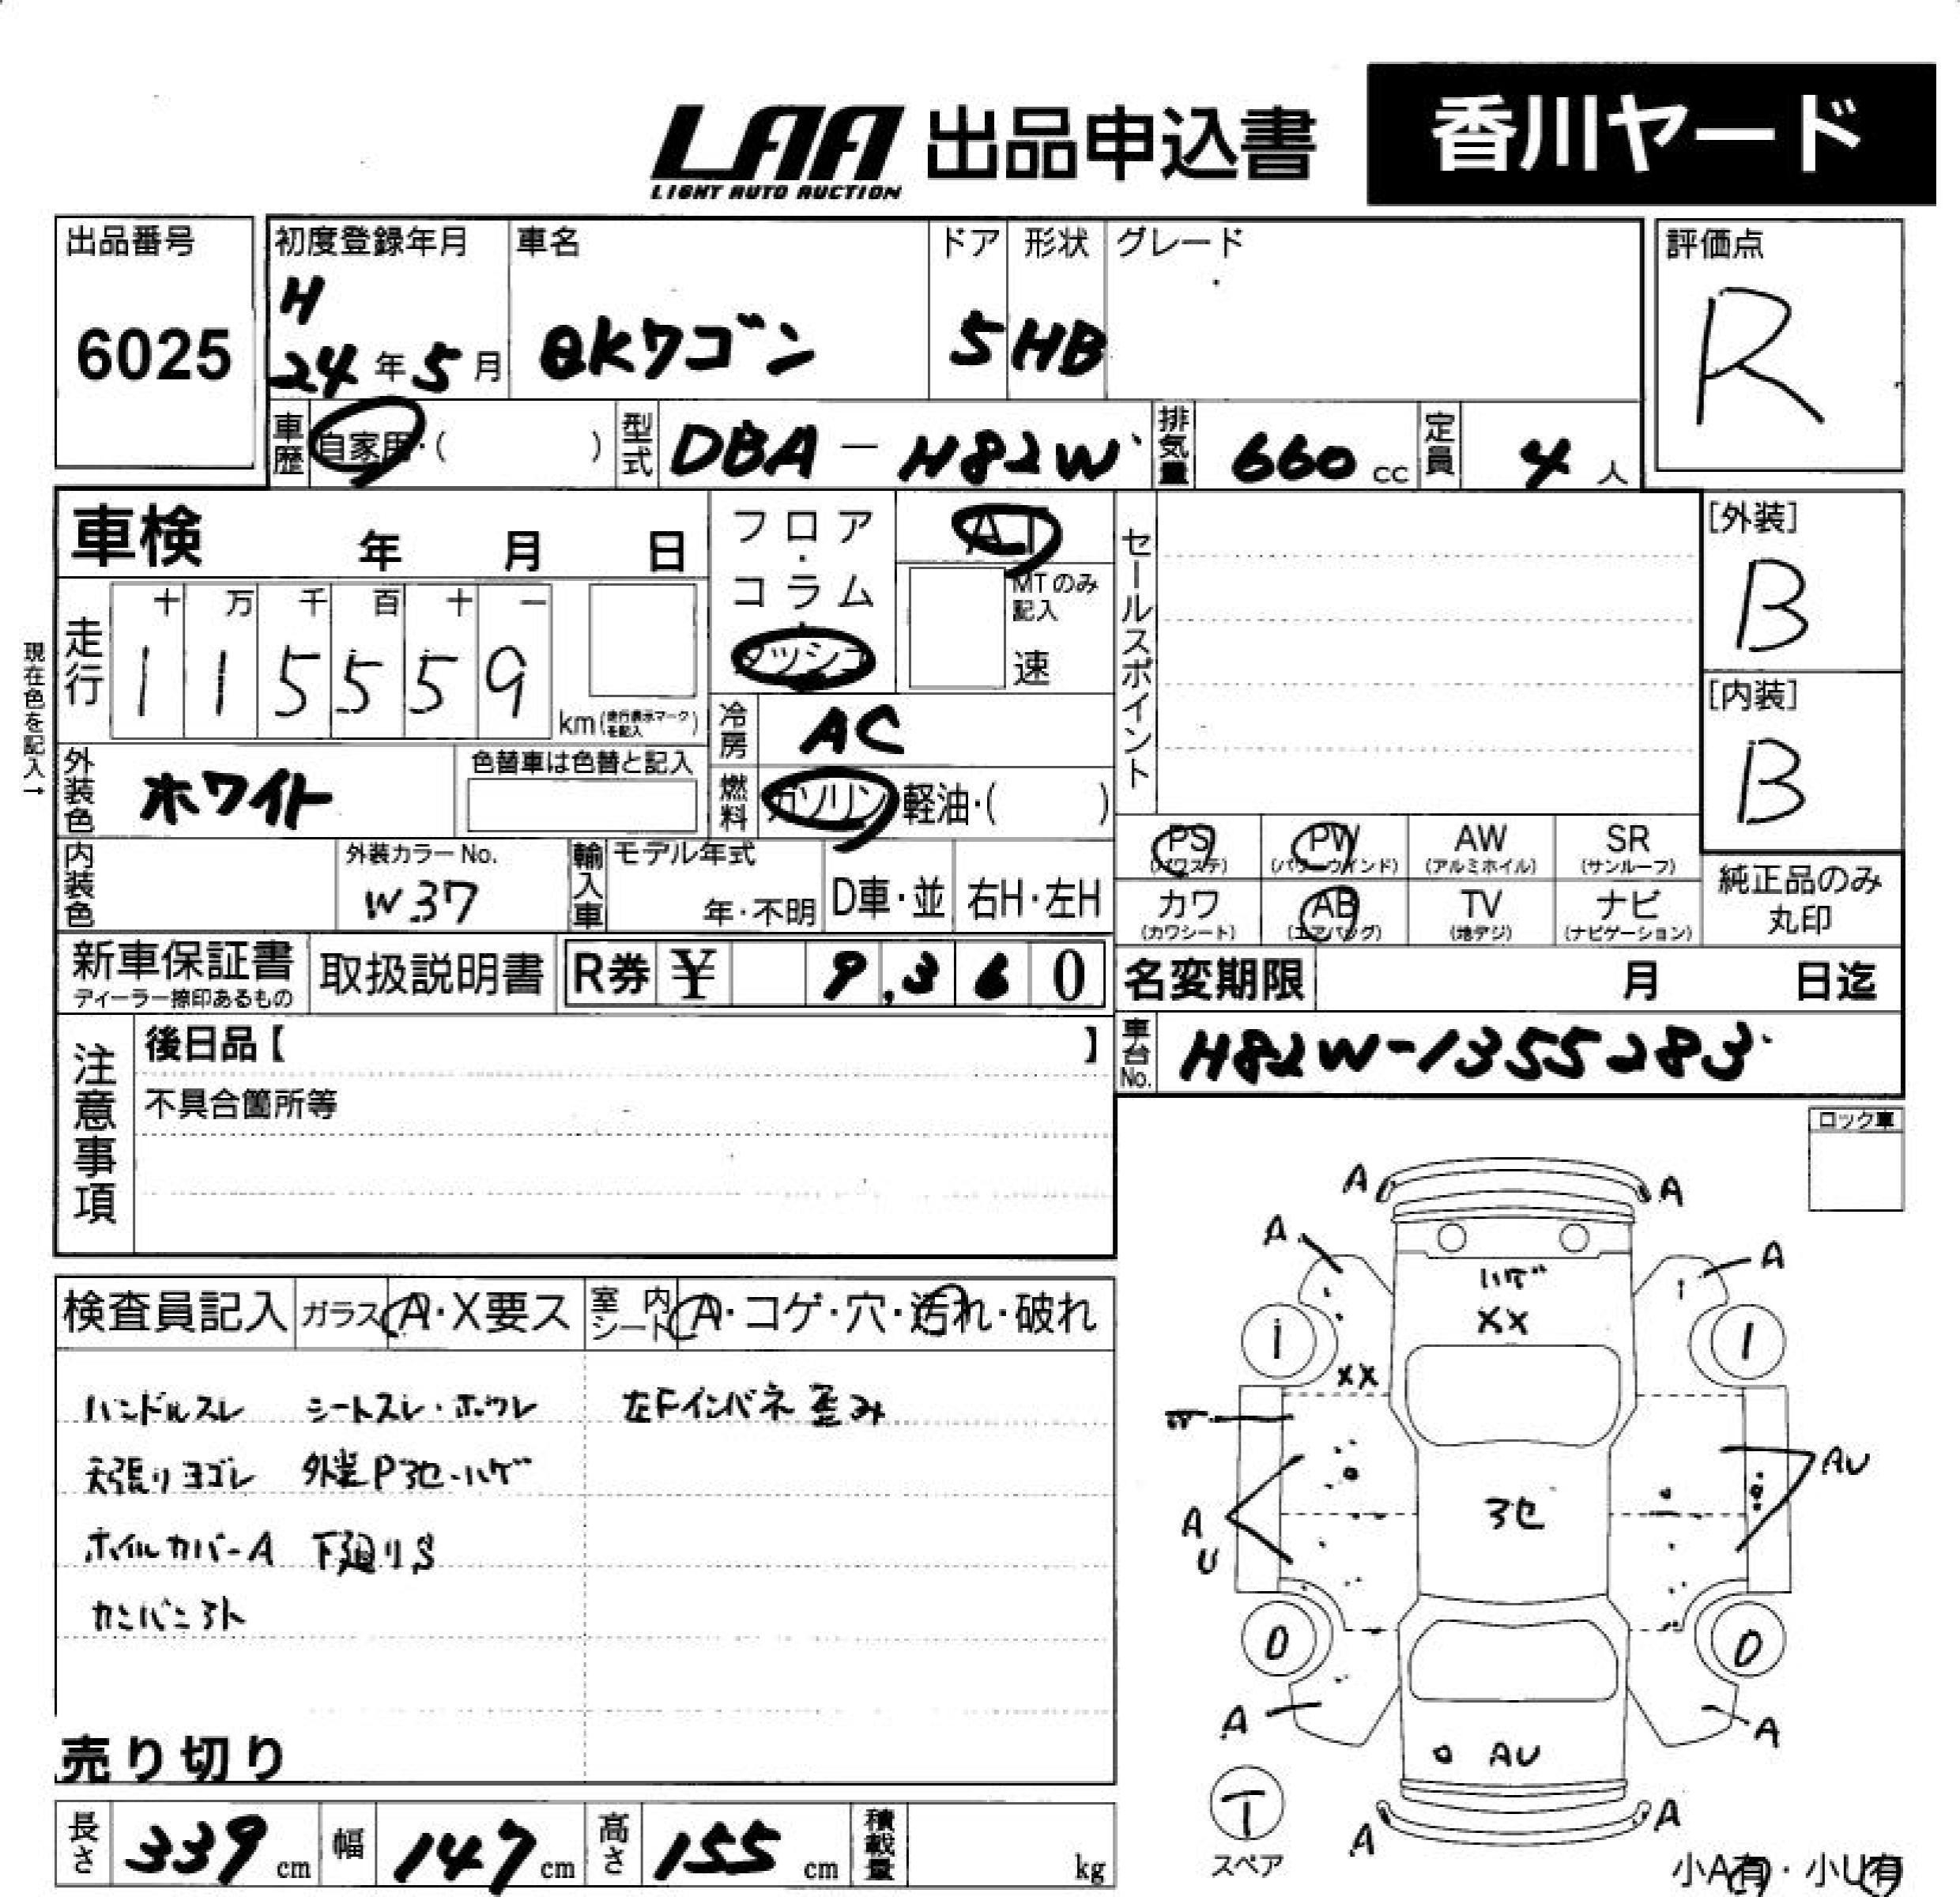 LAA 出品申込書 香川ヤード
LIGHT AUTO AUCTION
出品番号 初度登録年月 車名 ドア 形状 グレード 評価点
6025 H 24年5月 eKワゴン 5 HB R
車歴 自家用・( ) 型式 DBA-H82W 排気量 660 cc 定員 4 人
車検 年 月 日 フロア・コラム・ダッシュ AT セールスポイント [外装]
MTのみ記入 速 B
現在色を記入→
走行 十 万 千 百 十 一
1 1 5 5 5 9 km (走行表示マークを記入)
冷房 AC [内装]
外装色 ホワイト 色替車は色替と記入 燃料 ガソリン・軽油・( ) B
PS (パワステ) PW (パワーウインド) AW (アルミホイル) SR (サンルーフ)
内装色 外装カラーNo. W37 輸入車 モデル年式 年・不明 D車・並 右H・左H
カワ (カワシート) AB (エアバッグ) TV (地デジ) ナビ (ナビゲーション) 純正品のみ丸印
新車保証書 取扱説明書 R券 ¥ 9,360 名変期限 月 日迄
ディーラー捺印あるもの
注意事項 後日品【 】 車台No. H82W-1355283
不具合箇所等 ロック車
検査員記入 ガラス A・X要ス 室内シート A・コゲ・穴・汚れ・破れ
ハンドルスレ シートスレ・ホツレ 左Fインパネ歪み
天張りヨゴレ 外装P3セ・ハゲ
ホイルカバーA 下廻りS
カンバンアト
売り切り
長さ 339 cm 幅 147 cm 高さ 155 cm 積載量 kg
A A
A A
ハゲ
XX
1 1
XX
AU
3セ
A
U
0 0
A A
AU
T
スペア
A A
小A有・小U有